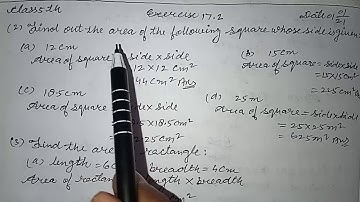 Class 5th Exercise 17.2 Date 01/21
(2) Find out the area of the following square whose side is given:
(a) 12cm
Area of square = side x side
= 12 x 12 cm²
44 cm² Ans
(b) 15cm
Area of square = side x side
= 15 x 15cm²
= 225cm²
(c) 18.5cm
Area of side x side
.5 x 18.5cm²
.25 cm²
(d) 25m
Area of square = side x side
= 25 x 25m²
= 625m² Ans
(3) Find the are rectangle:
(a) length = 6c breadth = 4cm
Area of rectan length x breadth
cm²